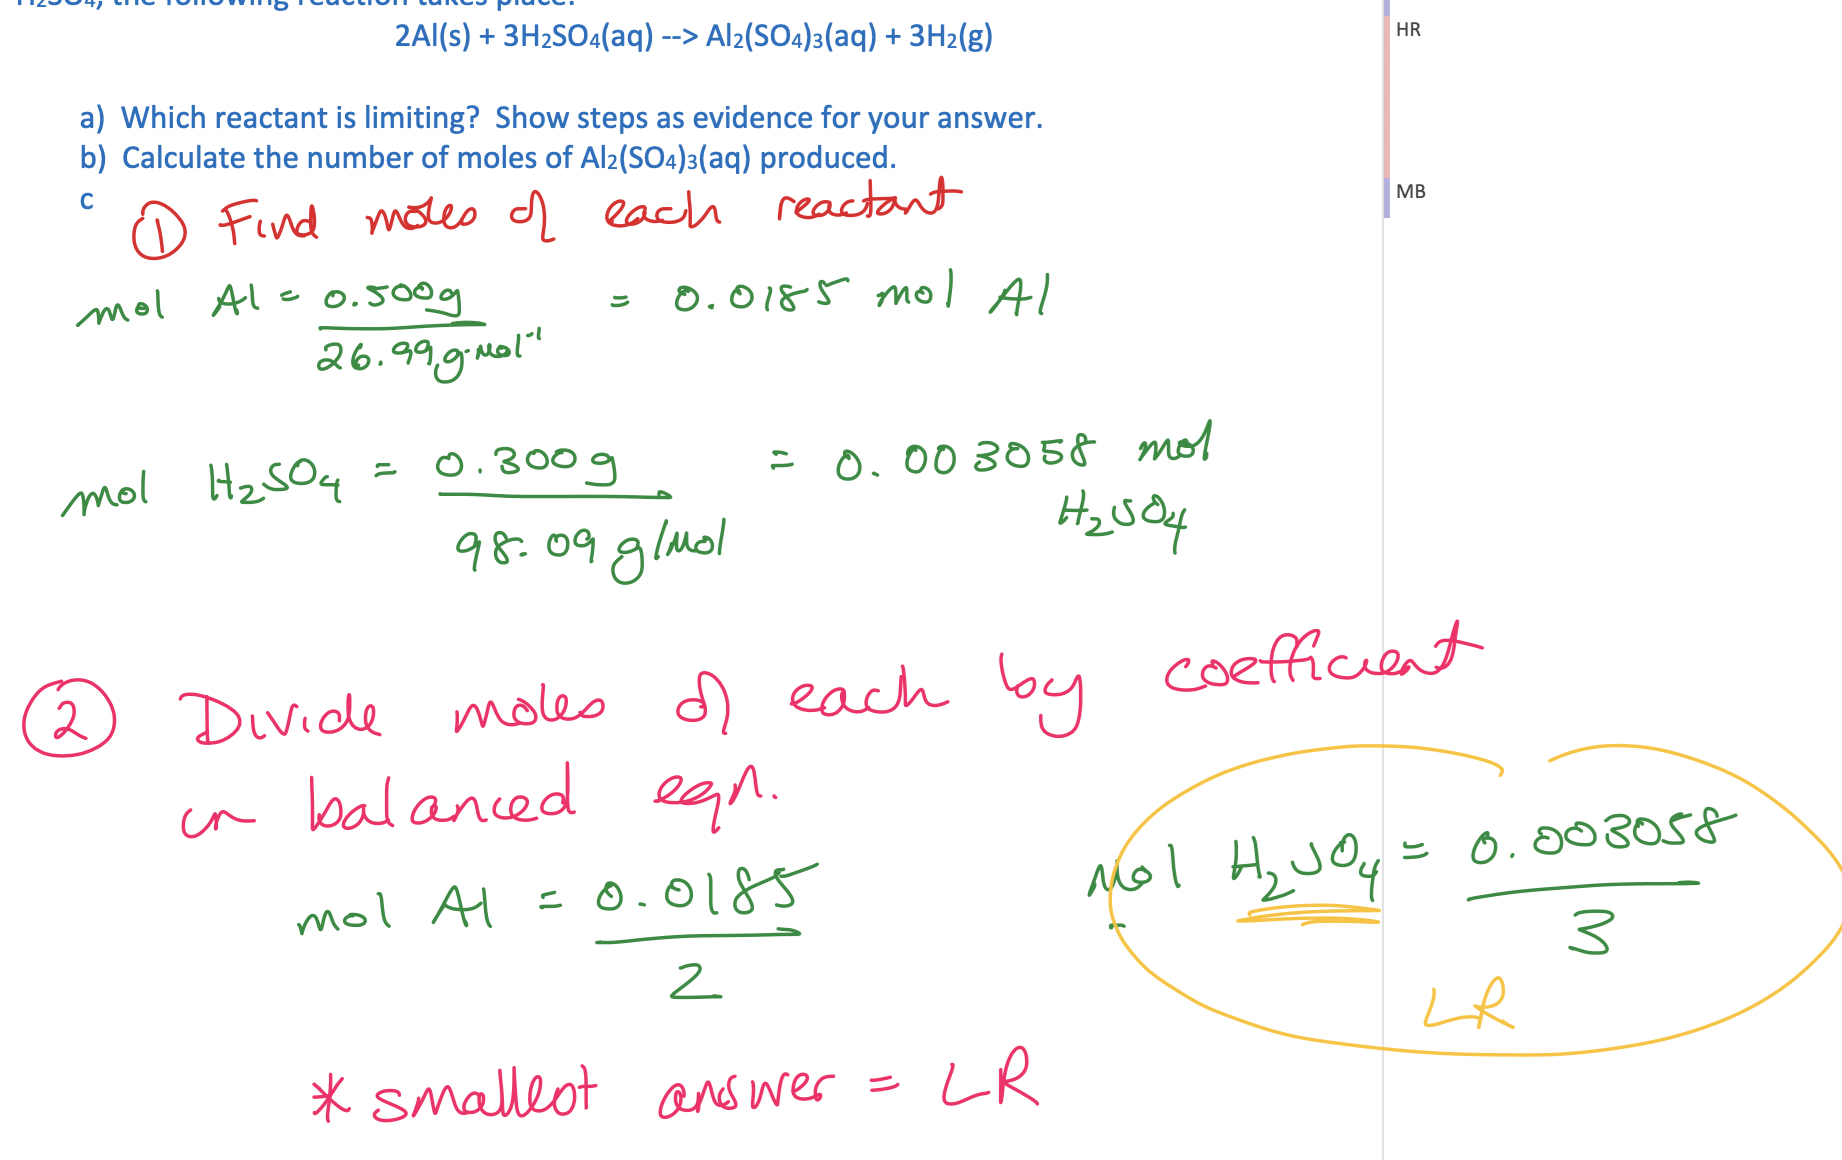 H₂SO₄, the following reaction takes place:
2Al(s) + 3H₂SO₄(aq) --> Al₂(SO₄)₃(aq) + 3H₂(g)
HR
a) Which reactant is limiting? Show steps as evidence for your answer.
b) Calculate the number of moles of Al₂(SO₄)₃(aq) produced.
c
MB
① Find moles of each reactant
mol Al = 0.500g / 26.99 g·mol⁻¹ = 0.0185 mol Al
mol H₂SO₄ = 0.300g / 98.09 g/mol = 0.003058 mol H₂SO₄
② Divide moles of each by coefficient
in balanced eqn.
mol Al = 0.0185 / 2
mol H₂SO₄ = 0.003058 / 3
LR
* smallest answer = LR